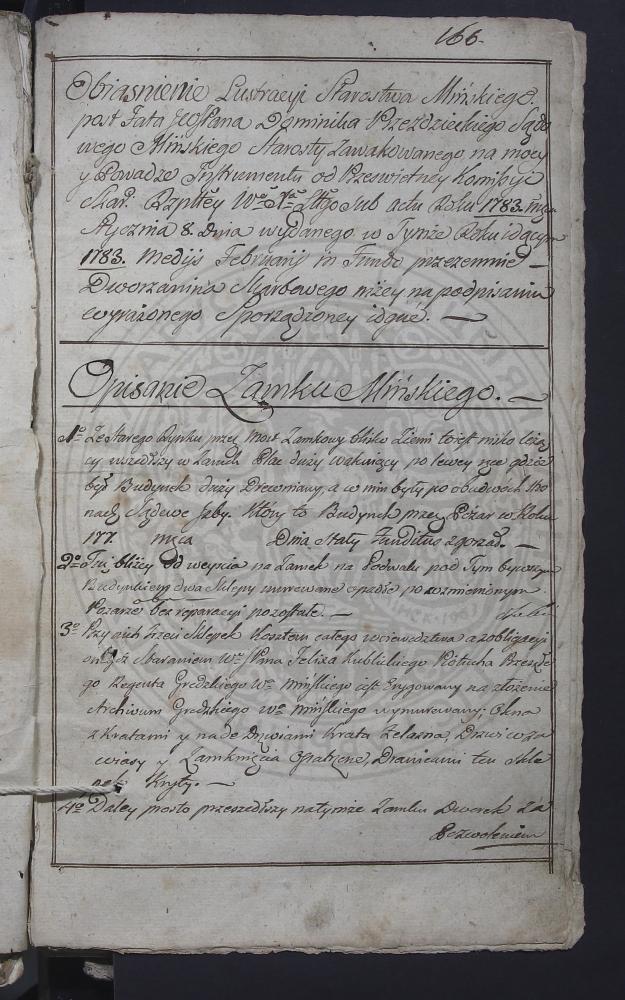 166.
Obiasnienie Lustracyi Starostwa Mińskiego.
post Fata JWPana Dominika Przezdzieckiego Sądo
wego Mińskiego Starosty zawakowanego, na mocy
y Powadze Instrumentu od Przeswietney Komissyi
Skar. Rzpltey Wo Xo Lttgo Sub actu Roku 1783. mca
Stycznia 8. Dnia wydanego w Tymże Roku idącym
1783. Medijs Februarij in Fundo przezemnie
Dworzanina Skarbowego niżey na podpisaniu
wyrażonego Sporządzoney idque. —
Opisanie Zamku Mińskiego. —
1o Ze Starego Rynku przez Most Zamkowy blisko Ziemi to iest nisko leżą
cy wszedłszy w Zamek Plac duży wakuiący po lewey ręce gdzie
był Budynek duży Drewniany, a w nim były po obudwóch Stro
nach Sądowe Izby. Który to Budynek przez Pożar w Roku
177 mca Dnia Stały funditus zgorzał. —
2o Tuż bliżey od weyscia na Zamek na Podwalu pod Tym bywszym
Budynkiem dwa Sklepy murowane opadłe po wzmienionym
Pożarze bez reparacyi pozostałe. —
3o Przy nich trzeci Sklepek Kosztem całego woiewodztwa a z obligacyi
onegoż Staraniem Wo Pana Felixa Kublickiego Piotucha Brzeskie
go Regenta Grodzkiego Wo Mińskiego iest Erygowany na złożenie
Archiwum Grodzkiego Wo Mińskiego wymurowany; Okna
z Kratami y nade Drzwiami Krata Żelazna, Drzwi w za
wiasy y Zamknięcia Opatrzone, Dranicami ten Skle
pek Kryty. —
4o Daley prosto przeszedłszy na tymże Zamku Dworek za
Pozwoleniem